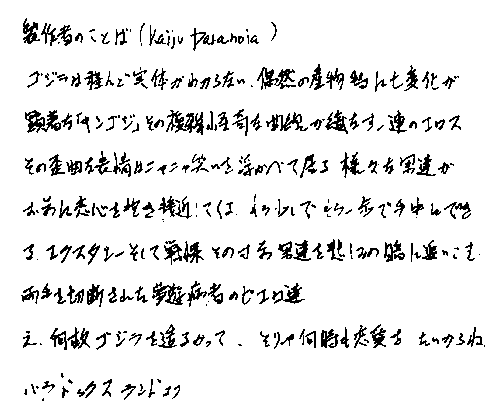 製作者のことば (Kaiju paranoia)
ゴジラは 実体がわからない、偶然の産物 にも変化が
顕著な「キンゴジ」その複雑怪奇な曲線が織なす一連のエロス
その歪曲な表情はニヤニヤ笑いを浮かべて居る 様々な男達が
お前に恋心を抱き接近しては、もう少しで もう一歩で手中にでき
る エクスタシーそして戦慄 その 男達を悲しみの に追いこむ
両手を切断された夢遊病者のピエロ達
え、何故ゴジラを造るかって、そりゃ何時も恋愛を たいからね
パラドックスランド